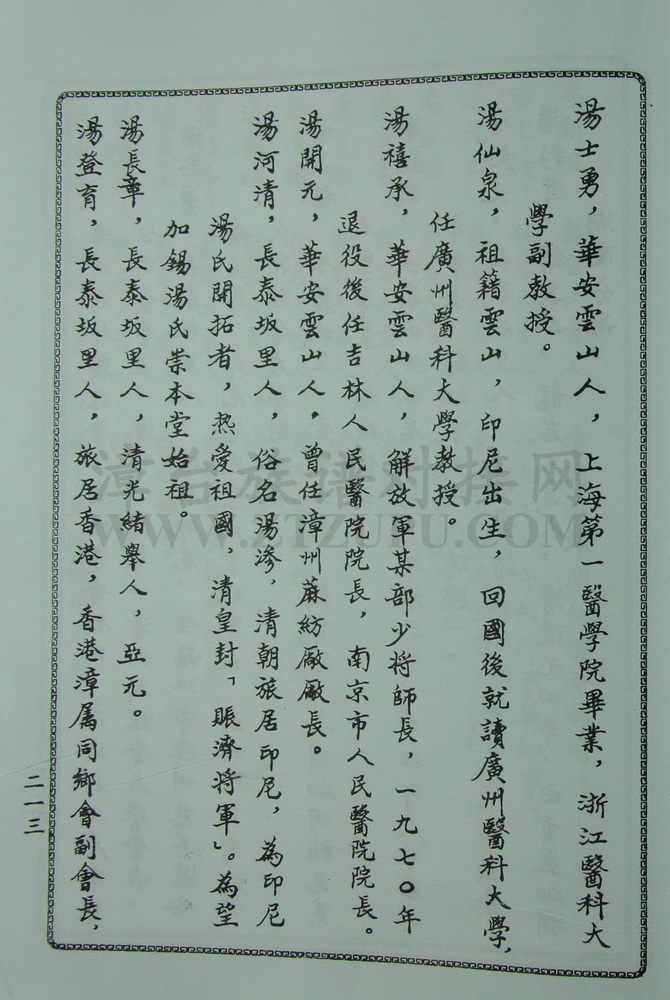 湯士勇，華安雲山人，上海第一醫學院畢業，浙江醫科大
學副教授。
湯仙泉，祖籍雲山，印尼出生，回國後就讀廣州醫科大學，
任廣州醫科大學教授。
湯禧承，華安雲山人，解放軍某部少將師長，一九七〇年
退役後任吉林人民醫院院長，南京市人民醫院院長。
湯開元，華安雲山人，曾任漳州蔴紡廠廠長。
湯河清，長泰坂里人，俗名湯滲，清朝旅居印尼，為印尼
湯氏開拓者，热爱祖國，清皇封「賑濟將軍」。為望
加錫湯氏崇本堂始祖。
湯長華，長泰坂里人，清光緒舉人，亞元。
湯登育，長泰坂里人，旅居香港，香港漳属同鄉會副會長，
二一三
漳台族谱对接网
WWW.ZTZUPU.COM